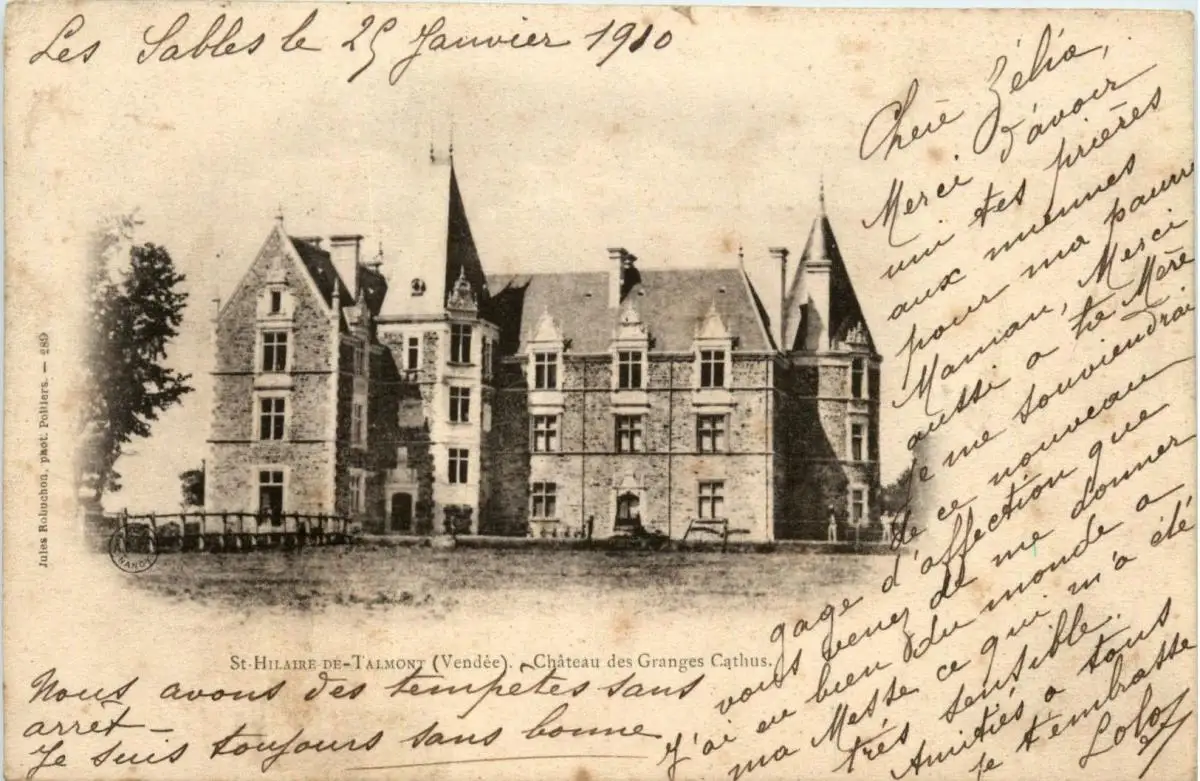 Les Sables le 25 Janvier 1910
Chère Zélia,
Merci d'avoir
uni tes prières
aux miennes
pour ma pauvre
Maman, Merci
aussi a ta Mère
Je me souviendrai
de ce nouveau
gage d'affection que
vous venez de me donner
J'ai eu bien du monde a
ma Messe ce qui m'a été
très sensible.
Amitiés a tous
je t'embrasse
Jules Robuchon, phot. Poitiers. — 289
NANCY
St-Hilaire-de-Talmont (Vendée). - Château des Granges Cathus.
Nous avons des tempêtes sans
arrêt —
Je suis toujours sans bonne